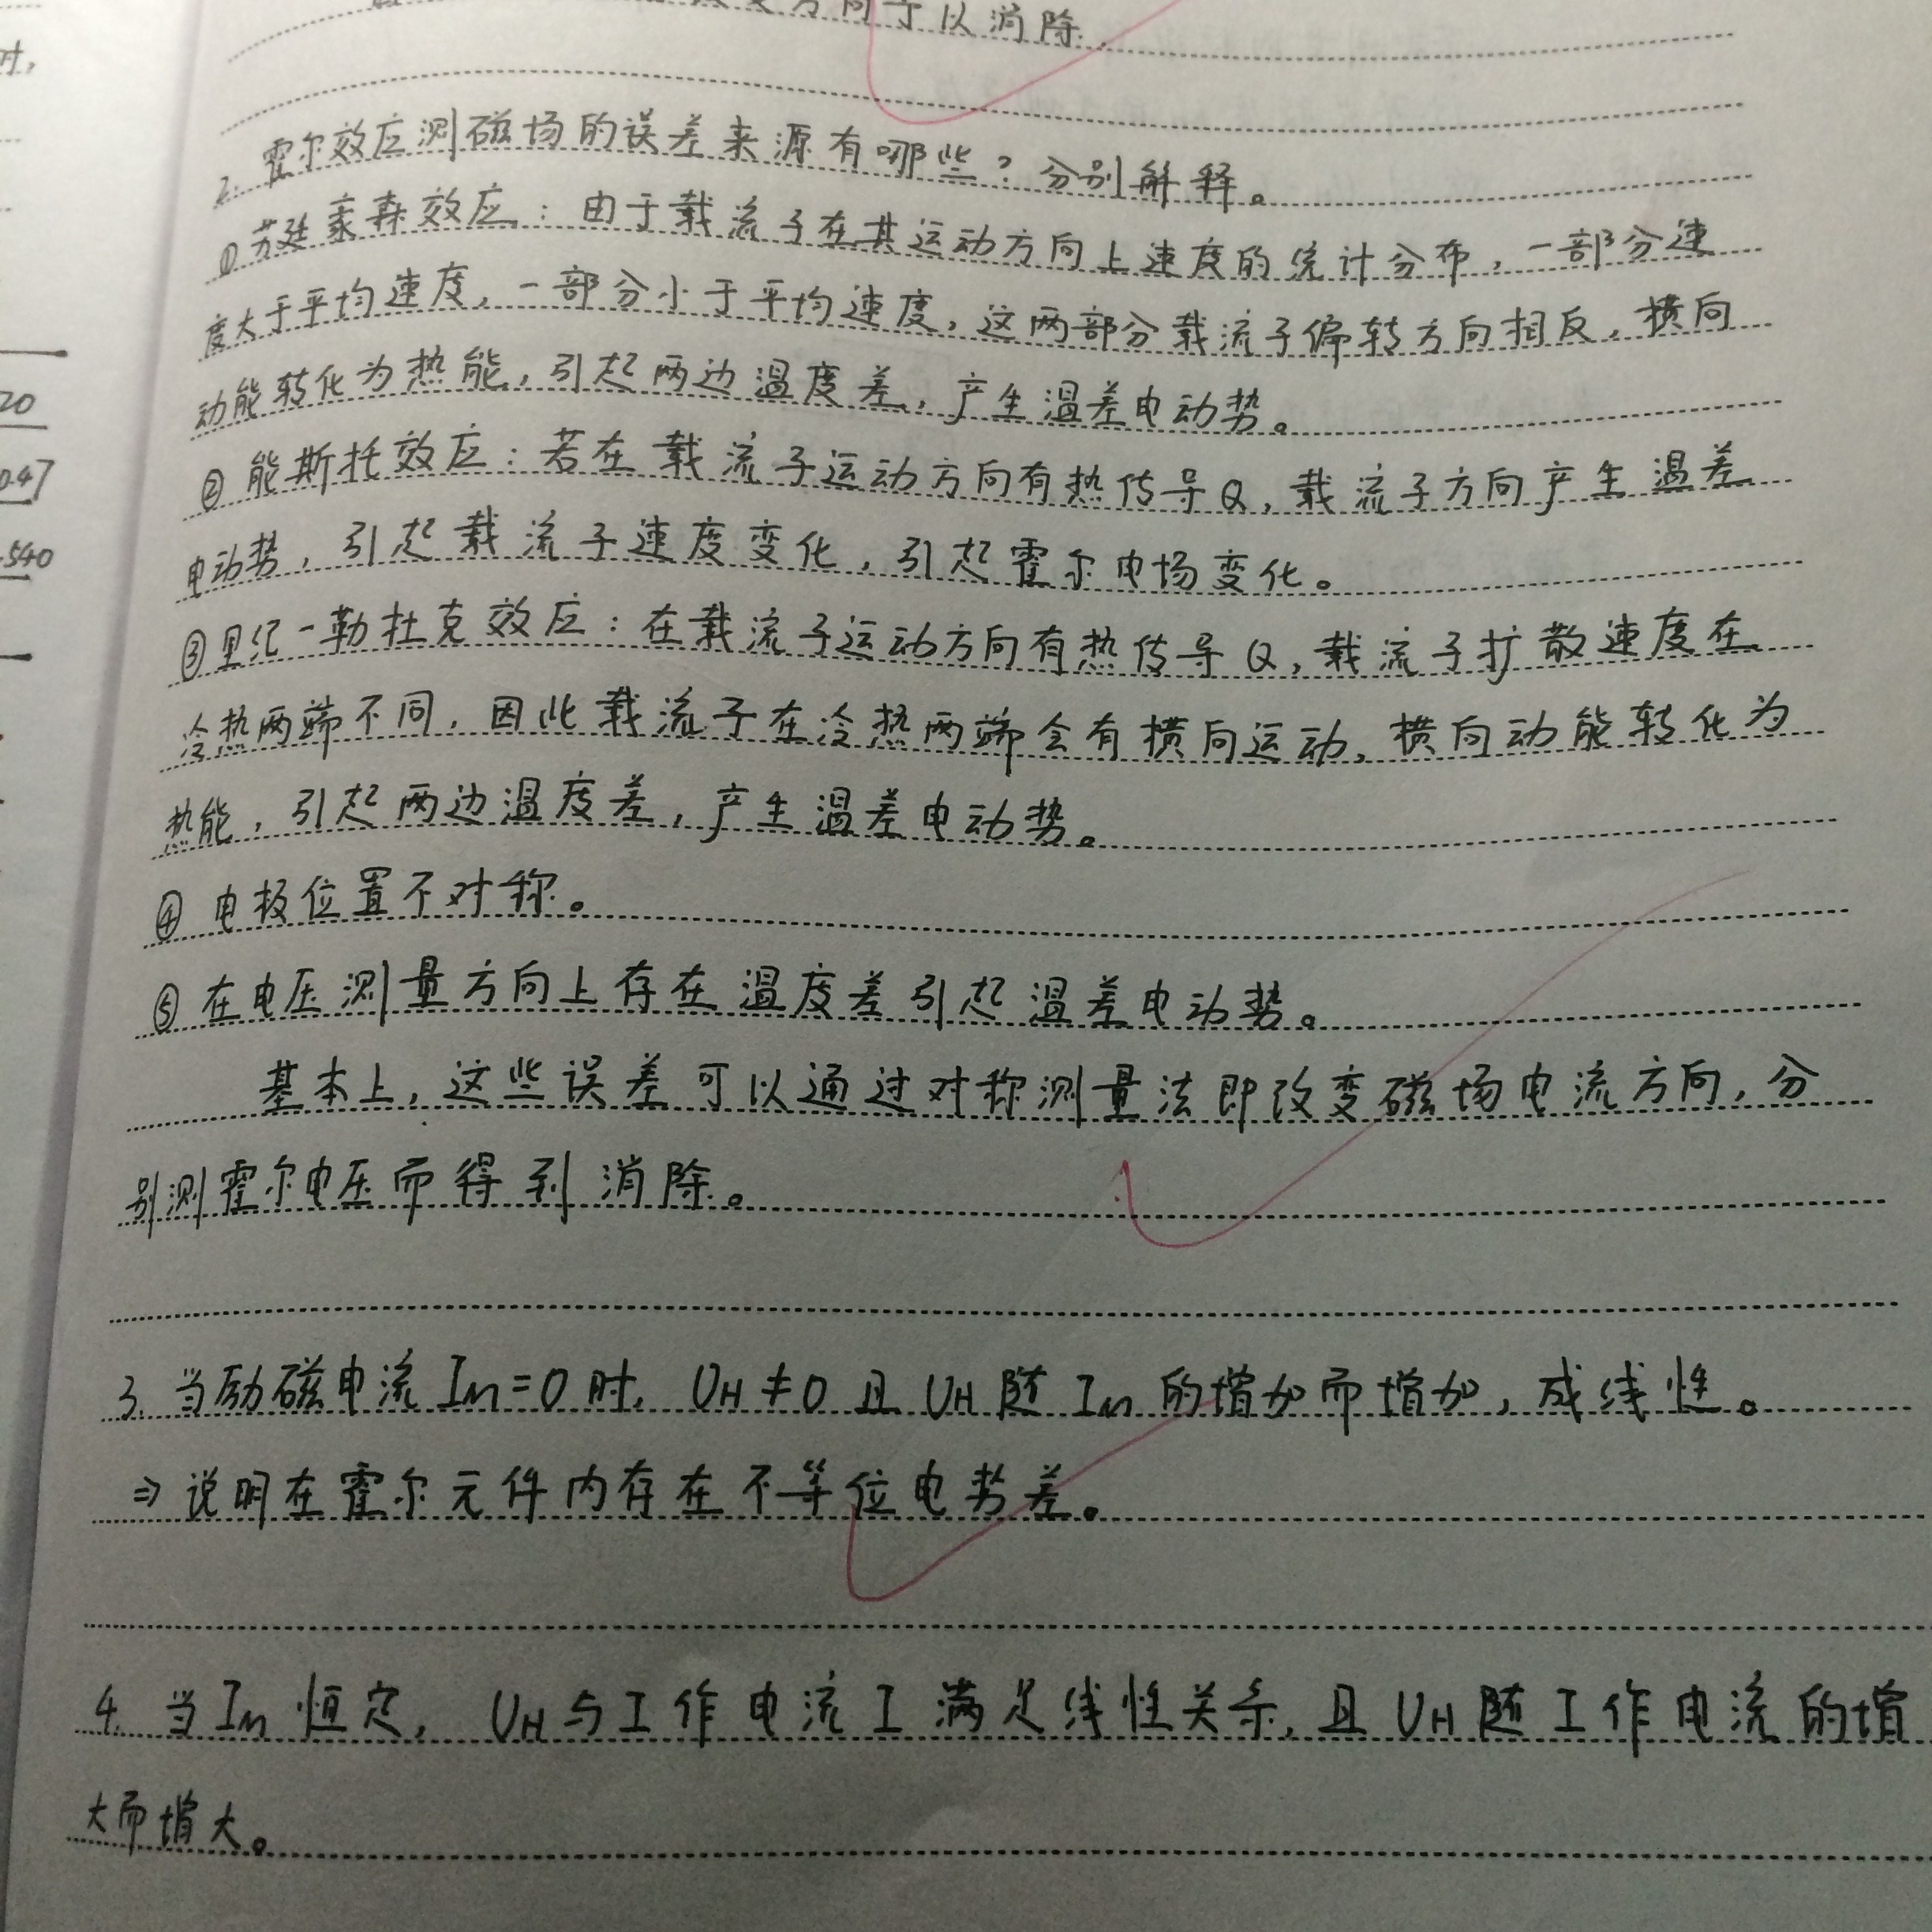 时,
20
0.47
.540
方向予以消除.
2. 霍尔效应测磁场的误差来源有哪些?分别解释。
①苏廷豪森效应:由于载流子在其运动方向上速度的统计分布,一部分速
度大于平均速度,一部分小于平均速度,这两部分载流子偏转方向相反,横向
动能转化为热能,引起两边温度差,产生温差电动势。
②能斯托效应:若在载流子运动方向有热传导Q,载流子方向产生温差
电动势,引起载流子速度变化,引起霍尔电场变化。
③里纪-勒杜克效应:在载流子运动方向有热传导Q,载流子扩散速度在
冷热两端不同,因此载流子在冷热两端会有横向运动,横向动能转化为
热能,引起两边温度差,产生温差电动势。
④电极位置不对称。
⑤在电压测量方向上存在温度差引起温差电动势。
基本上,这些误差可以通过对称测量法即改变磁场电流方向,分
别测霍尔电压而得到消除。
3. 当励磁电流Im=0时, UH≠0且UH随Im的增加而增加,成线性。
⇒说明在霍尔元件内存在不等位电势差。
4. 当Im恒定, UH与工作电流I满足线性关系,且UH随工作电流的增
大而增大。